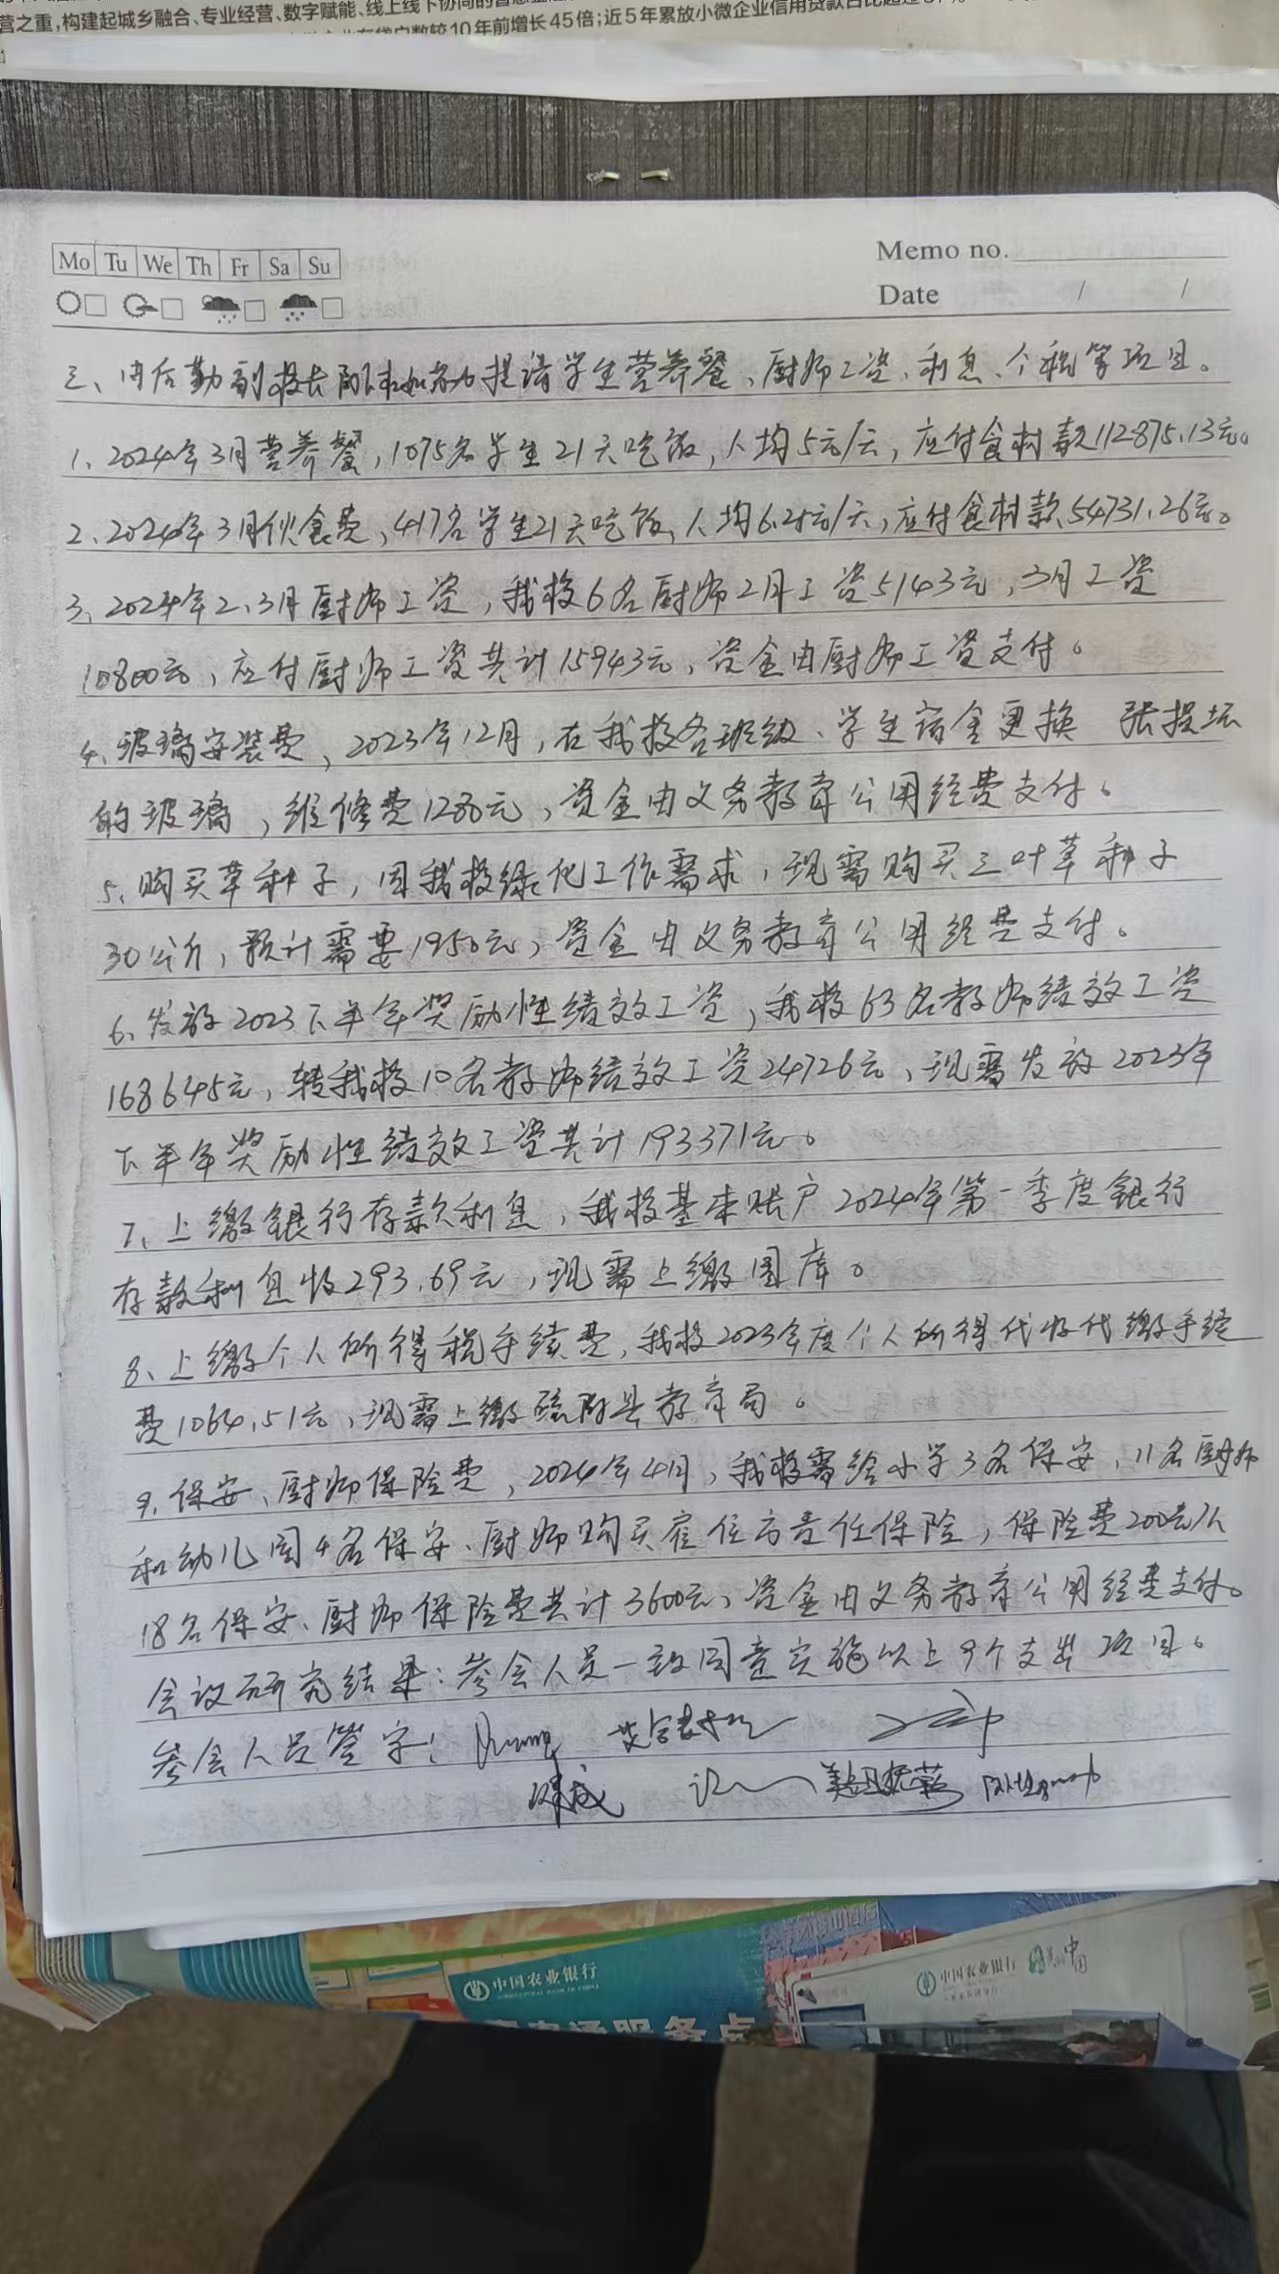 营之重,构建起城乡融合、专业经营、数字赋能、线上线下协同的普惠金融
户数较10年前增长45倍;近5年累放小微企业信用贷款占比超过
Mo Tu We Th Fr Sa Su
Memo no.
Date / /
三、由后勤副校长 提请学生营养餐、厨师工资、利息、个税等项目。
1、2024年3月营养餐,1075名学生21天吃饭,人均5元/天,应付食材款112875.13元。
2、2024年3月伙食费,417名学生21天吃饭,人均6.25元/天,应付食材款54731.26元。
3、2024年2、3月厨师工资,我校6名厨师2月工资5143元,3月工资
10800元,应付厨师工资共计15943元,资金由厨师工资支付。
4、玻璃安装费,2023年12月,在我校各班级、学生宿舍更换 张损坏
的玻璃,维修费1280元,资金由义务教育公用经费支付。
5、购买草种子,因我校绿化工作需求,现需购买三叶草种子
30公斤,预计需要1950元,资金由义务教育公用经费支付。
6、发放2023下半年奖励性绩效工资,我校63名教师绩效工资
168645元,转我校10名教师绩效工资24726元,现需发放2023年
下半年奖励性绩效工资共计193371元。
7、上缴银行存款利息,我校基本账户2024年第一季度银行
存款利息收293.69元,现需上缴国库。
8、上缴个人所得税手续费,我校2023年度个人所得代收代缴手续
费1064.51元,现需上缴疏附县教育局。
9、保安、厨师保险费,2024年4月,我校需给小学3名保安、11名厨师
和幼儿园4名保安、厨师购买雇住方责任保险,保险费200元/人
18名保安、厨师保险费共计3600元,资金由义务教育公用经费支付。
会议研究结果:参会人员一致同意实施以上9个支出项目。
参会人员签字:
中国农业银行
AGRICULTURAL BANK OF CHINA
中国农业银行
服务点